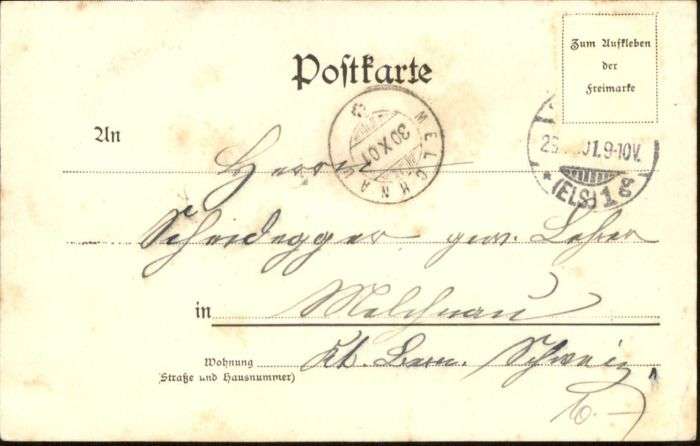 Postkarte
Zum Aufkleben
der
Freimarke
MELCHNAU
30.X.01
25 01.9-10V.
* (ELS) 1g
An
Herrn
Scheidegger gew. Lehrer
in Melchnau
Wohnung Kt. Bern. Schweiz
(Straße und Hausnummer)